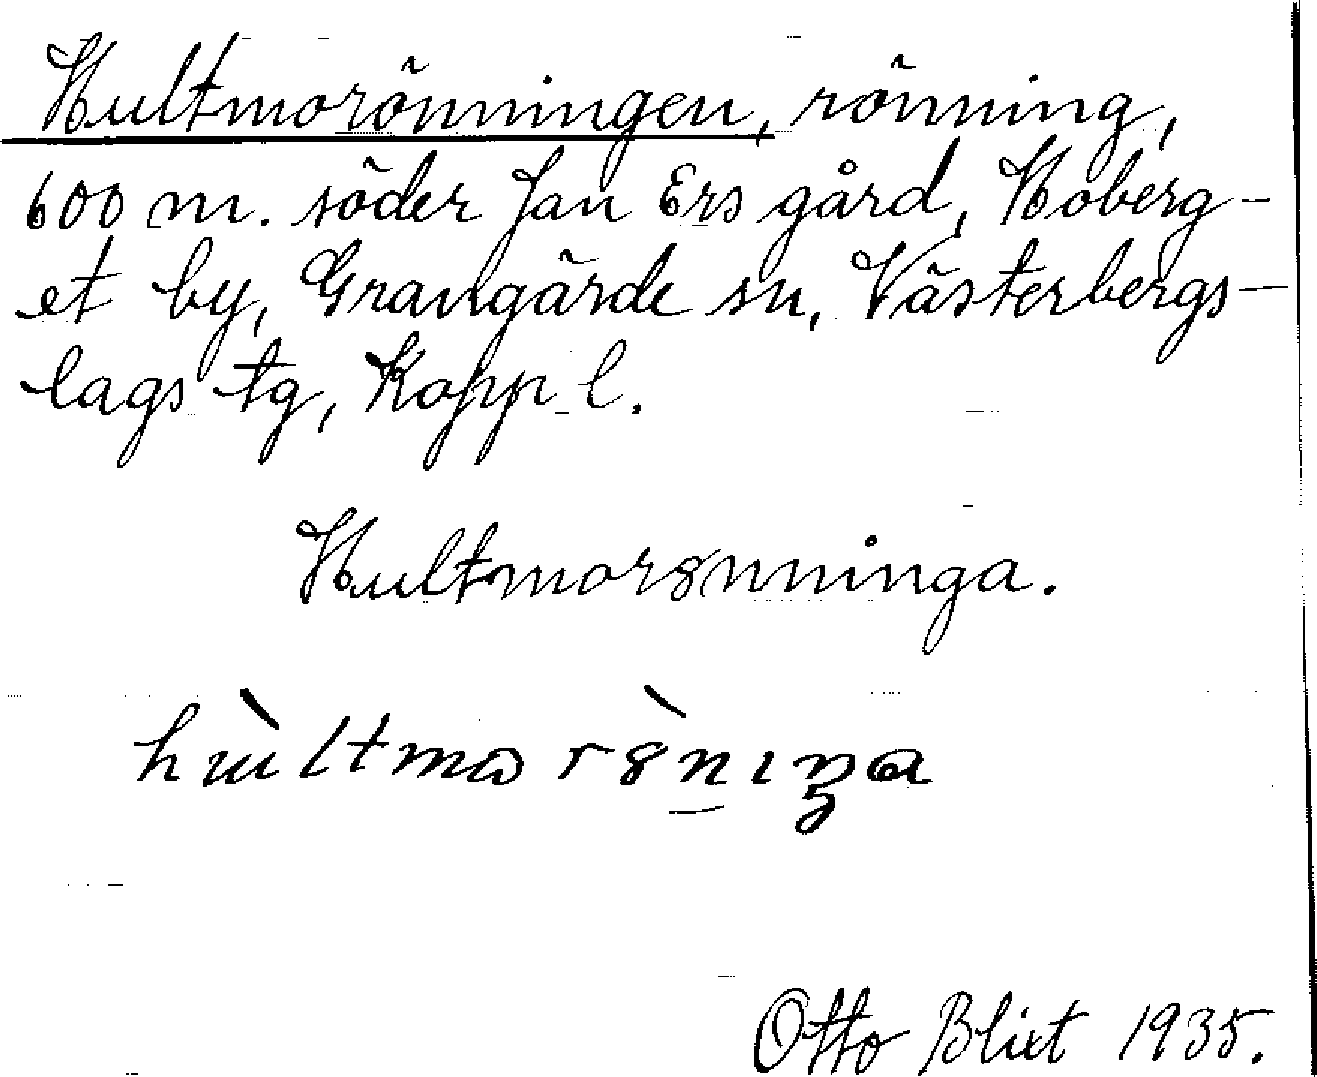 Hultmorönningen, rönning,
600 m. söder Jan Ers gård, Hoberg-
et by, Grangärde sn, Västerbergs-
lags tg, Kopp l.
Hultmorȣnninga.
Otto Blixt 1935.